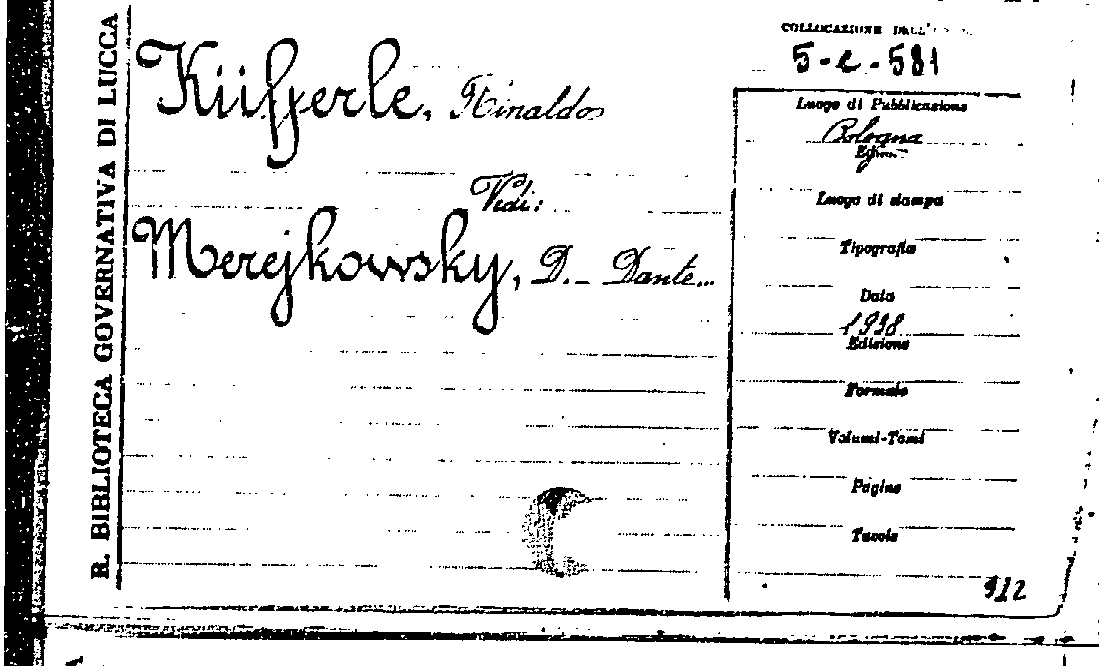 R. BIBLIOTECA GOVERNATIVA DI LUCCA
Küfferle, Rinaldo
Vidi:
Merejkowsky, D. - Dante...
COLLOCAZIONE
5-e-581
Luogo di Pubblicazione
Bologna
Luogo di stampa
Tipografia
Data
1938
Edizione
Formato
Volumi-Tomi
Pagine
Tavole
912